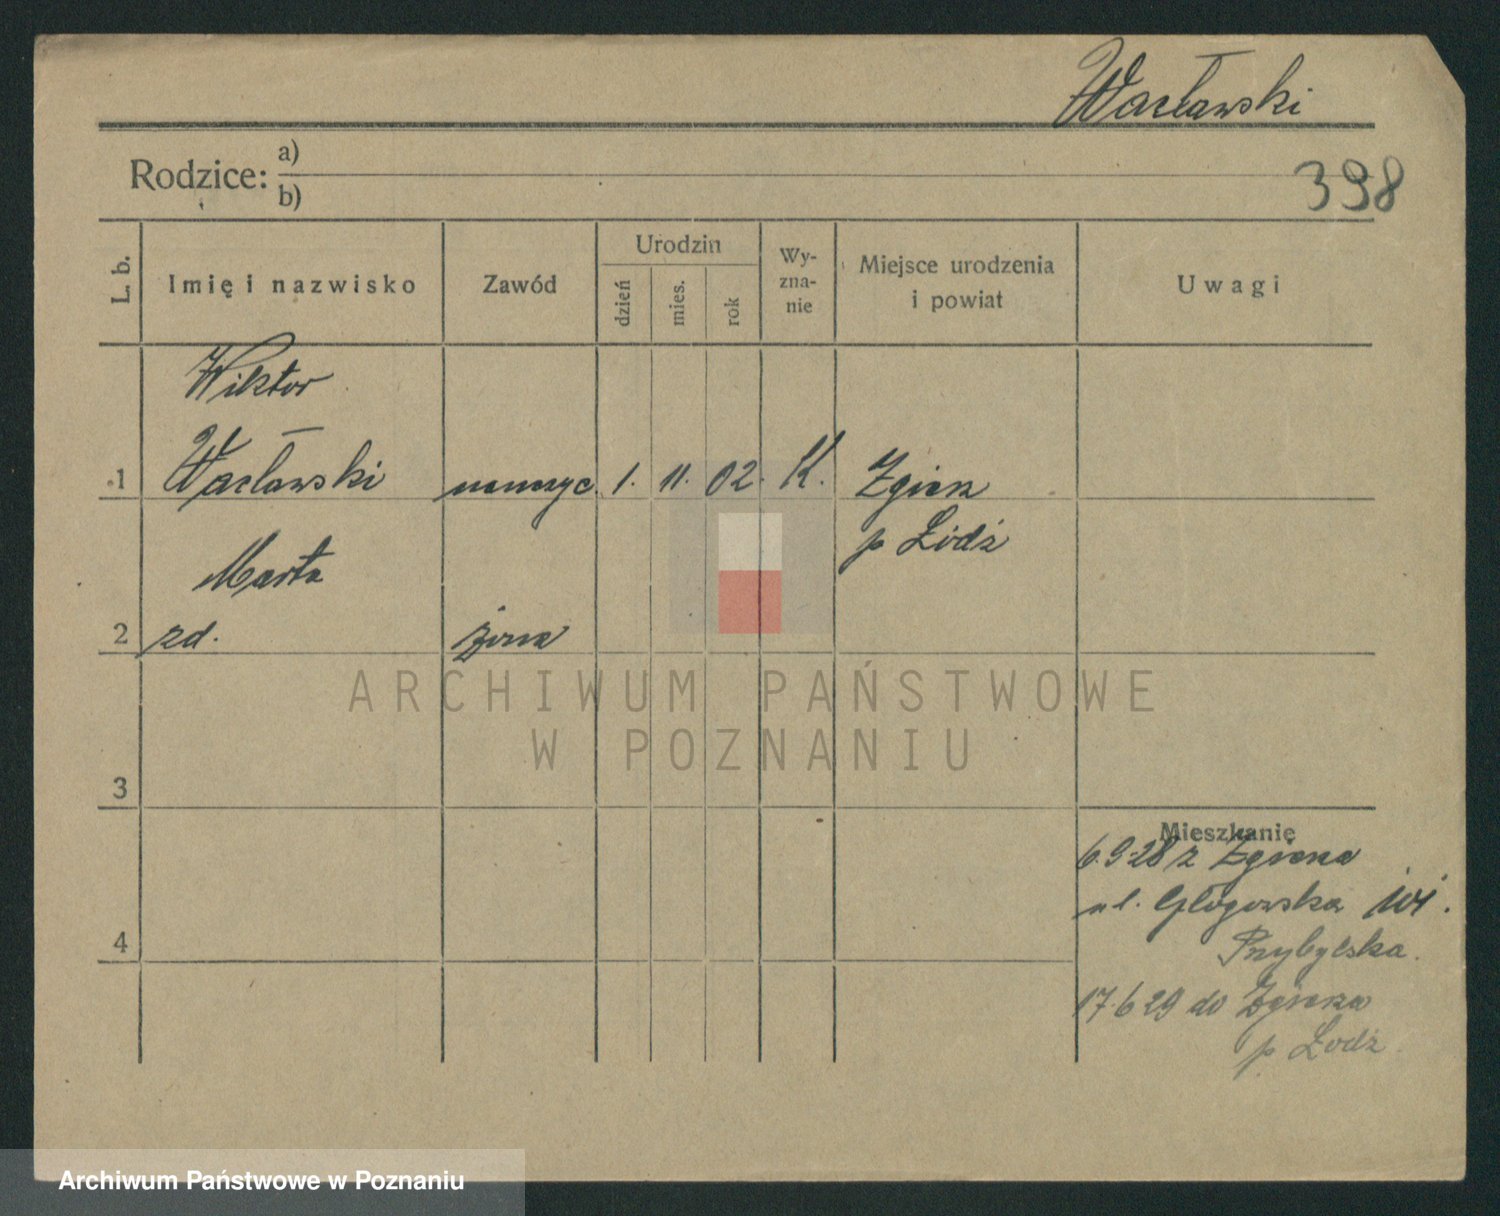 Wacławski
Rodzice: a)
b)
398
L. b.
Imię i nazwisko
Zawód
Urodzin
dzień
mies.
rok
Wy-
zna-
nie
Miejsce urodzenia
i powiat
Uwagi
Wiktor
1 Wacławski nauczyc. 1. 11. 02. K. Zgierz
p Łódź
Marta
2 zd. żona
ARCHIWUM PAŃSTWOWE
W POZNANIU
3
Mieszkanie
6.9.28 z Zgierza
ul. Głogowska 101.
4
Przybylska.
17.6 29 do Zgierza
p Łodź
Archiwum Państwowe w Poznaniu